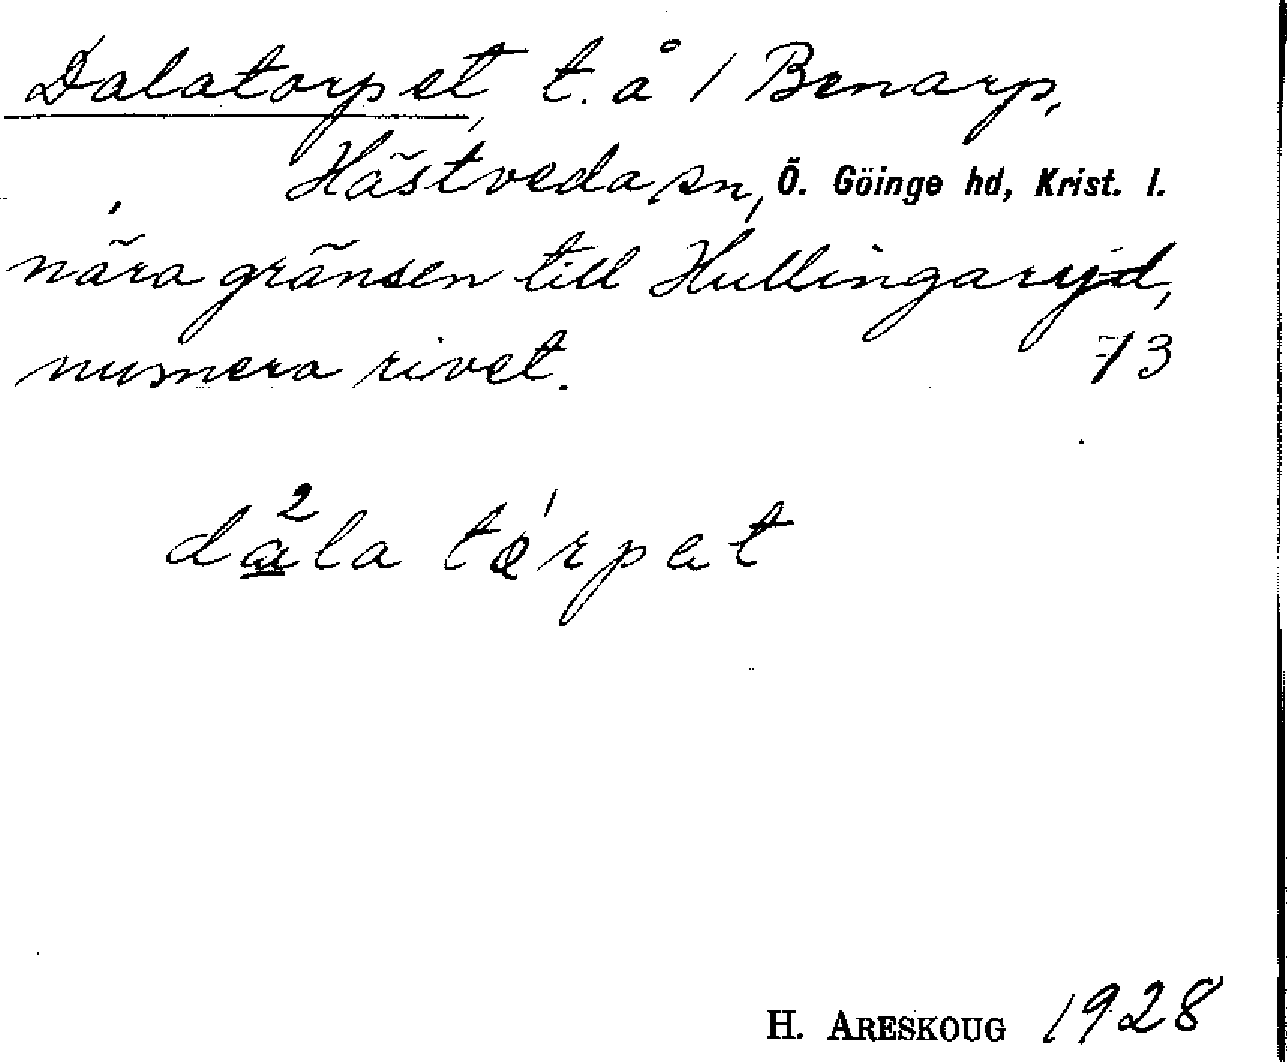 Dalatorpet, t. å 1 Benarp,
Hästveda sn, Ö. Göinge hd, Krist. l.
nära gränsen till Hullingaryd,
numera rivet. 73
da̲²la tǫ́rpat
H. ARESKOUG 1928